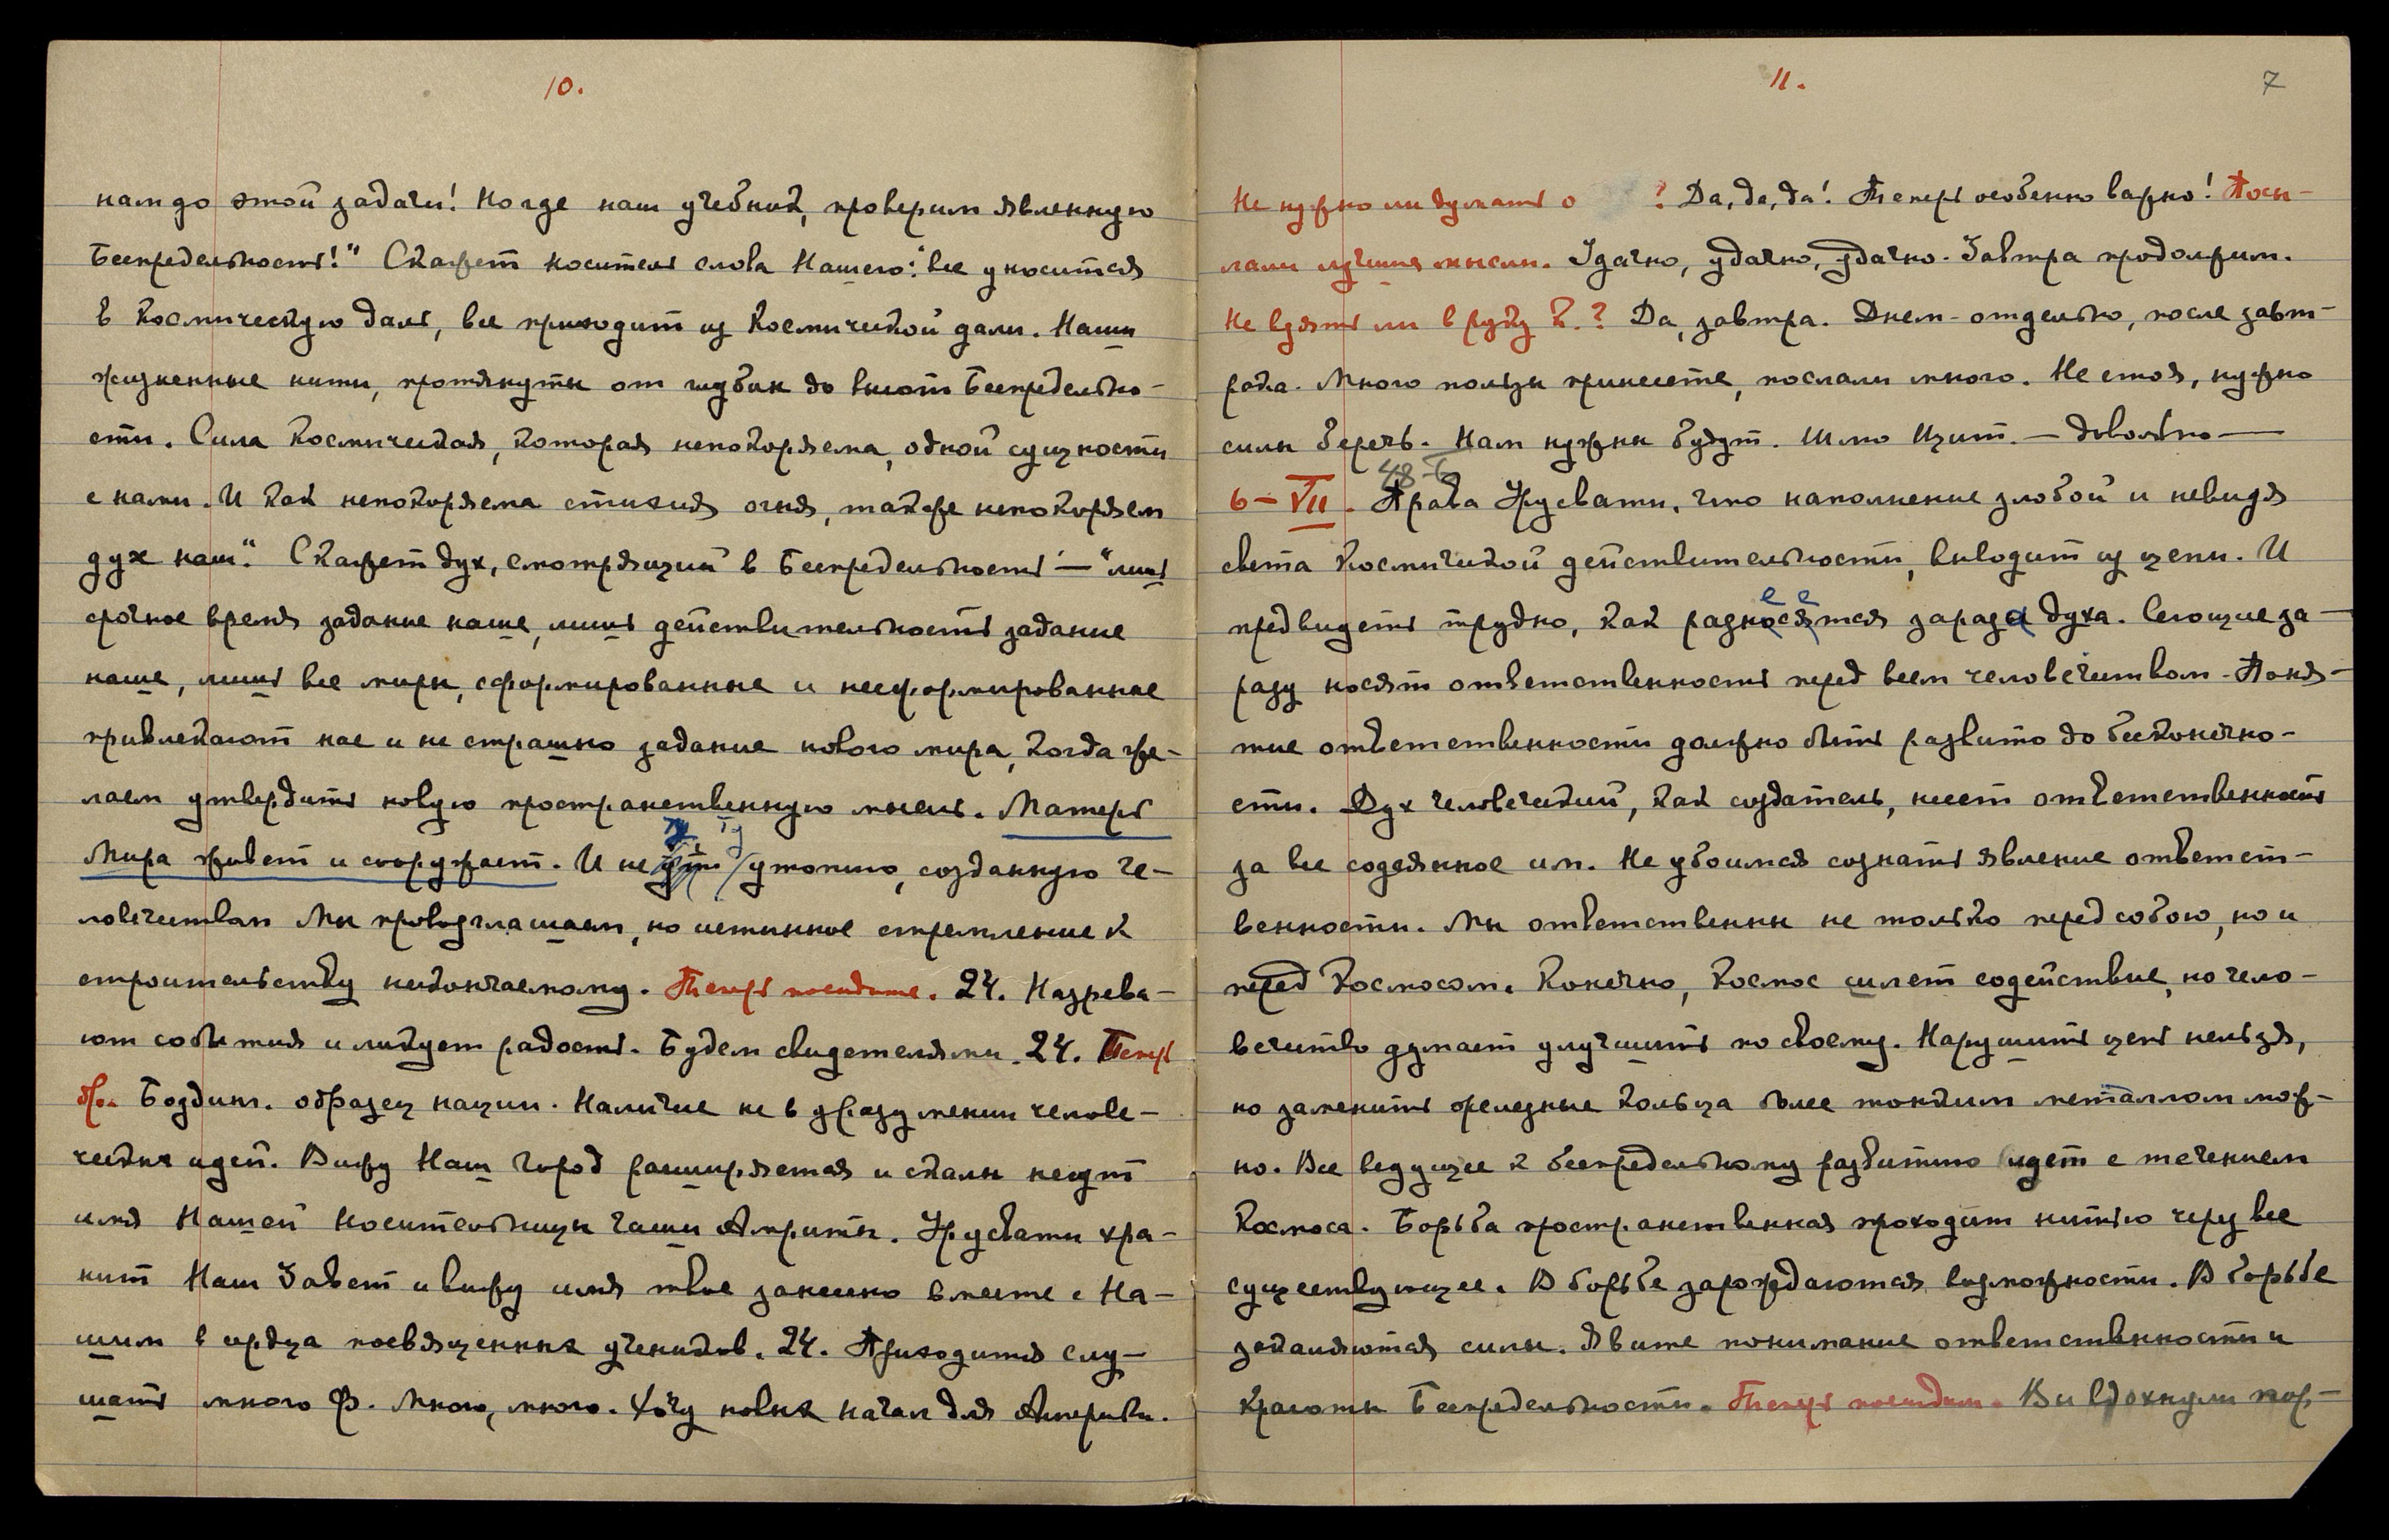 10.
нам до этой задачи! Но где наш учебник, проверим явленную
Беспредельность!" Скажет носитель слова Нашего: "все уносится
в Космическую даль, все приходит из Космической дали. Наши
жизненные нити, протянуты от глубин до высот Беспредельно-
сти. Сила Космическая, которая непокоряема, одной сущности
с нами. И как непокоряема стихия огня, также непокоряем
дух наш." Скажет дух, смотрящий в Беспредельность — "лишь
срочное время задание наше, лишь действительность задание
наше, лишь все миры, сформированные и несформированные
привлекают нас и не страшно задание нового мира, когда же-
лаем утвердить новую пространственную мысль. Матерь
Мира живет и сооружает. И не ту утопию, созданную че-
ловечеством Мы провозглашаем, но истинное стремление к
строительству нескончаемому. Теперь посидите. 24. Назрева-
ют события и ликует радость. Будем свидетелями. 24. Теперь
бр. Бодхит. образец нации. Наличие не в уразумении челове-
ческих идей. Вижу Наш Город расширяется и скалы несут
имя Нашей Носительницы чаши Амриты. Урусвати хра-
нит Наш Завет и вижу имя твое занесено вместе с На-
шим в сердца посвященных учеников. 24. Приходится слу-
шать много Ф. Много, много. Хочу новых начал для Америки.
11.
7
Не нужно ли думать о ? Да, да, да! Теперь особенно важно! Посы-
лали лучшие мысли. Удачно, удачно, удачно. Завтра продолжим.
Не взять ли в руку К.? Да, завтра. Днем - отдельно, после завт-
рака. Много пользы принесете, послали много. Не стоя, нужно
силы беречь. Нам нужны будут. — довольно —
48-Б
6 – VII. Права Урусвати, что наполнение злобой и невидя
света Космической действительности, выводит из цепи. И
предвидеть трудно, как разнесется зараза духа. Сеющие за-
разу носят ответственность перед всем человечеством. Поня-
тие ответственности должно быть развито до бесконечно-
сти. Дух человеческий, как создатель, несет ответственность
за все содеянное им. Не убоимся сознать явление ответст-
венности. Мы ответственны не только перед собою, но и
перед Космосом. Конечно, Космос шлет содействие, но чело-
вечество думает улучшить по своему. Нарушить цепь нельзя,
но заменить железные кольца более тонким металлом мож-
но. Все ведущее к беспредельному развитию идет с течением
Космоса. Борьба пространственная проходит нитью через все
существующее. В борьбе зарождаются возможности. В борьбе
закаляются силы. Явите понимание ответственности и
красоты Беспредельности. Теперь посидим. Вы вдохнули пор-